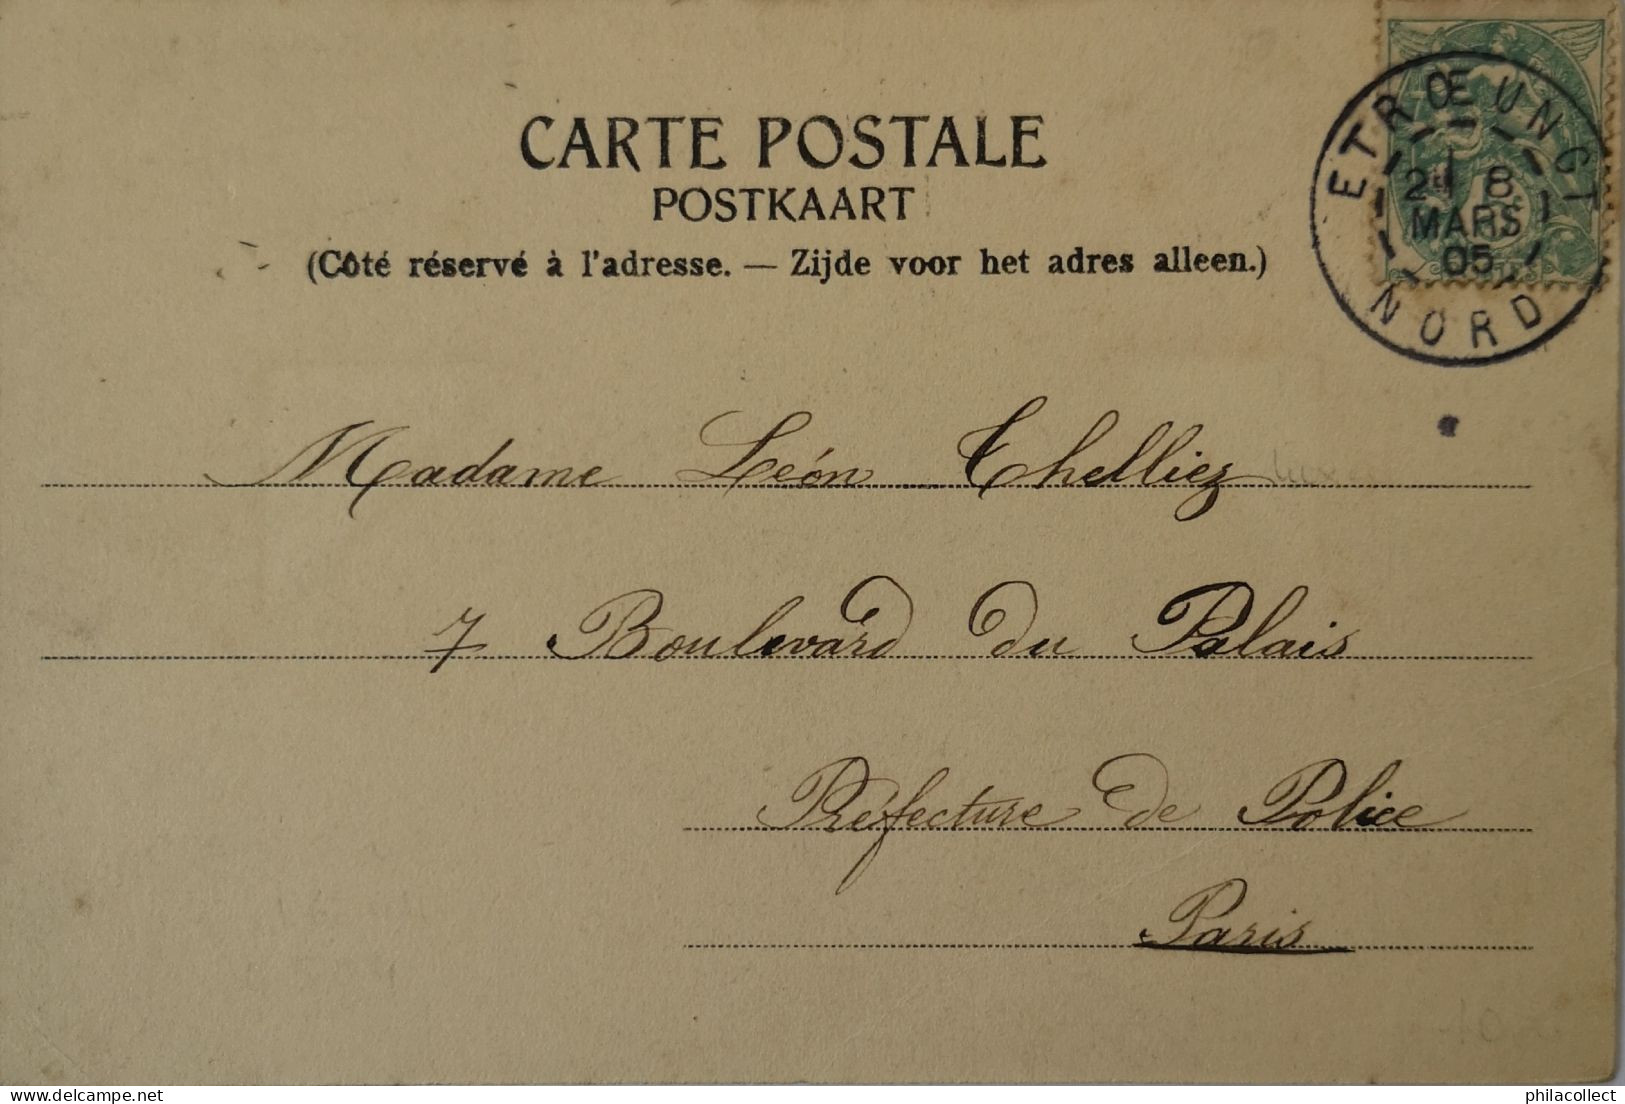 CARTE POSTALE
POSTKAART
(Côté réservé à l'adresse. — Zijde voor het adres alleen.)
ETRŒUNGT
2H 8
MARS
05
NORD
Madame Léon Thelliez
7 Boulevard du Palais
Préfecture de Police
Paris
philacollect